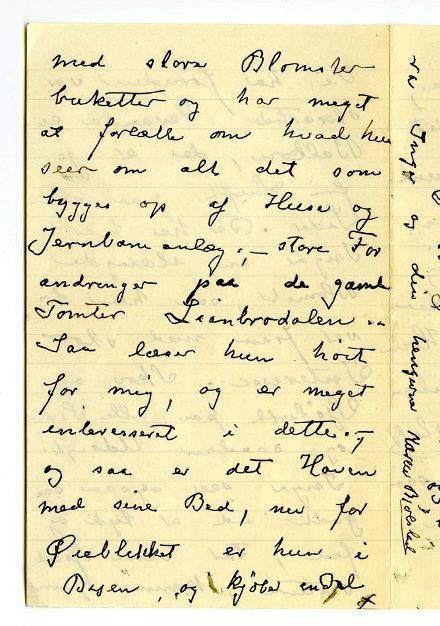 med store Blomster
buketter og har meget
at fortælle om hvad hun
seer om alt det som
bygges op af Huse og
Jernbaneanlæg; – store For
andringer paa de gamle
Tomter
Saa læser hun høit
for mig, og er meget
interesseret i dette, –
og saa er det Haven
med sine Bed, nu for
Øieblikket er hun i
Byen, og kjøber endel
Inger og din hengivne Karen